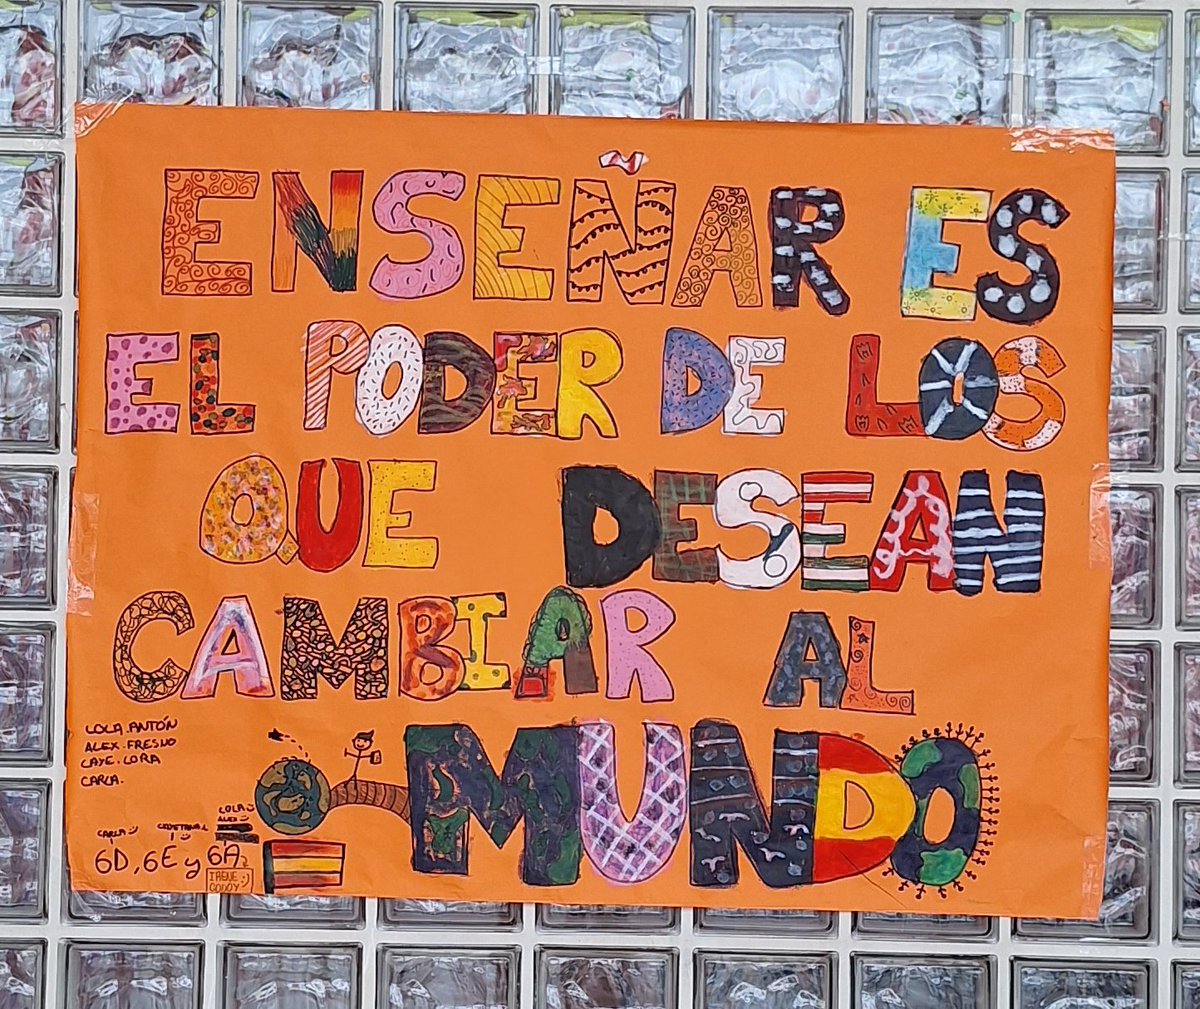 ENSEÑAR ES
EL PODER DE LOS
QUE DESEAN
CAMBIAR AL
MUNDO
LOLA.ANTÓN
ALEX.FRESNO
CAYE.LORA
CARLA.
LOLA
ALEX
CARLA
CAYETANA
6D, 6E y 6A
IRENE
GODOY